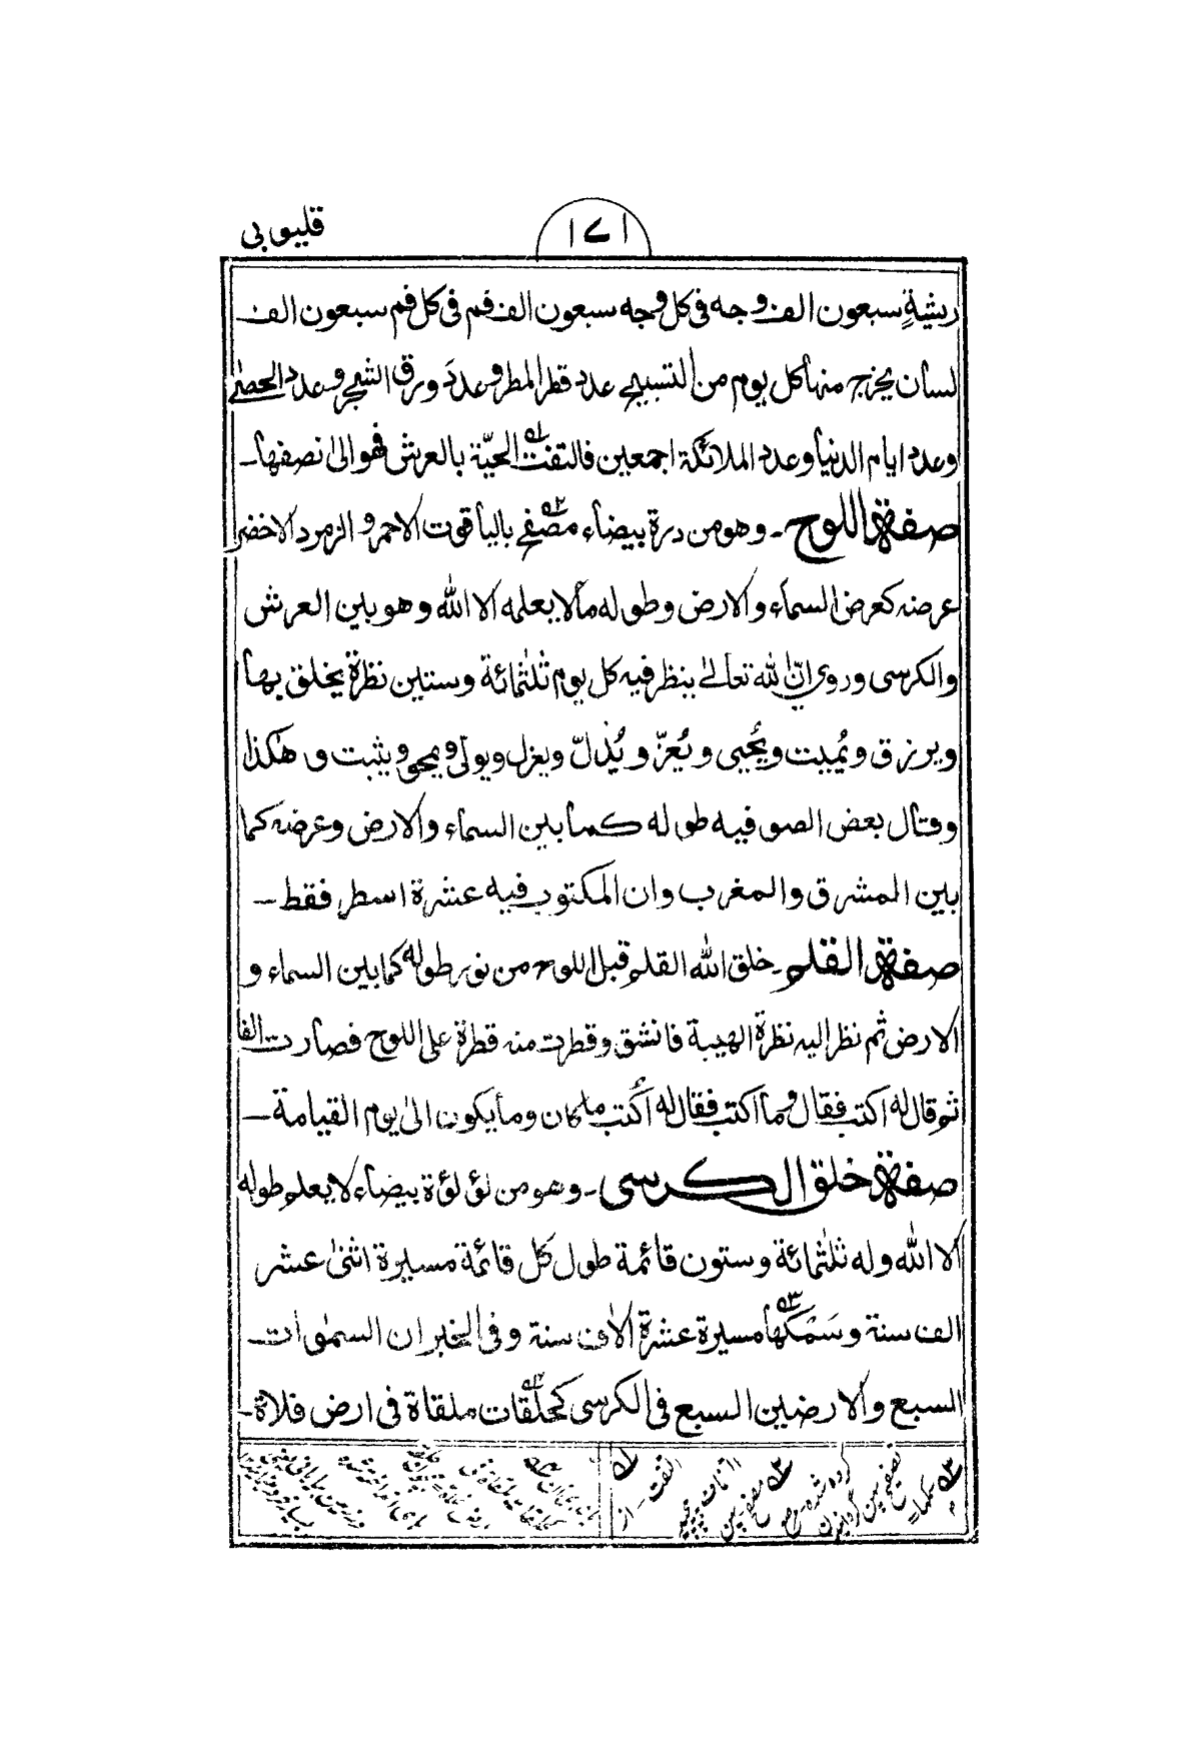 قليوبي
١٧١
ريشةٍ سبعون الف وجه فى كل وجه سبعون الف فم فى كل فم سبعون الف
لسان يخرج منها كل يوم من التسبيح عدد قطر المطر وعددَ ورق الشجر وعدد الحصٰى
وعدد ايام الدنيا وعدد الملائكة اجمعين فالتفت الحيّة بالعرش فهو الىٰ نصفها۔
صفة اللوح ۔ وهو من درة بيضاء مصفح بالياقوت الاحمر و الزمرد الاخضر
عرضه كعرض السماء والارض وطوله مالا يعلمه الا الله وهو بين العرش
والكرسى وروي انّ الله تعالىٰ ينظر فيه كل يوم ثلٰثمائة وستين نظرة يخلق بها
ويرزق ويُميت ويُحيى ويُعزّ ويُذلّ ويعزل ويولى ويمحو ويثبت و هٰكذا
وقال بعض الصوفيه طوله كما بين السماء والارض وعرضه كما
بين المشرق والمغرب وان المكتوب فيه عشرة اسطر فقط ۔
صفة القلم ۔ خلق الله القلم قبل اللوح من نور طوله كما بين السماء و
الارض ثم نظر اليه نظرة الهيبة فانشق وقطرت منه قطرة على اللوح فصارت الفا
ثم قال له اكتب فقال وما اكتب فقال له اُكتب ما كان وما يكون الىٰ يوم القيامة ۔
صفة خلق الكرسى ۔ وهو من لؤلؤة بيضاء لا يعلم طوله
الا الله وله ثلٰثمائة وستون قائمة طول كل قائمة مسيرة اثنىٰ عشر
الف سنة وسَمْكها مسيرة عشرة الاٰف سنة وفى الخبر ان السمٰوات ۔
السبع والارضين السبع فى الكرسى كحلقات ملقاة فى ارض فلاة ۔